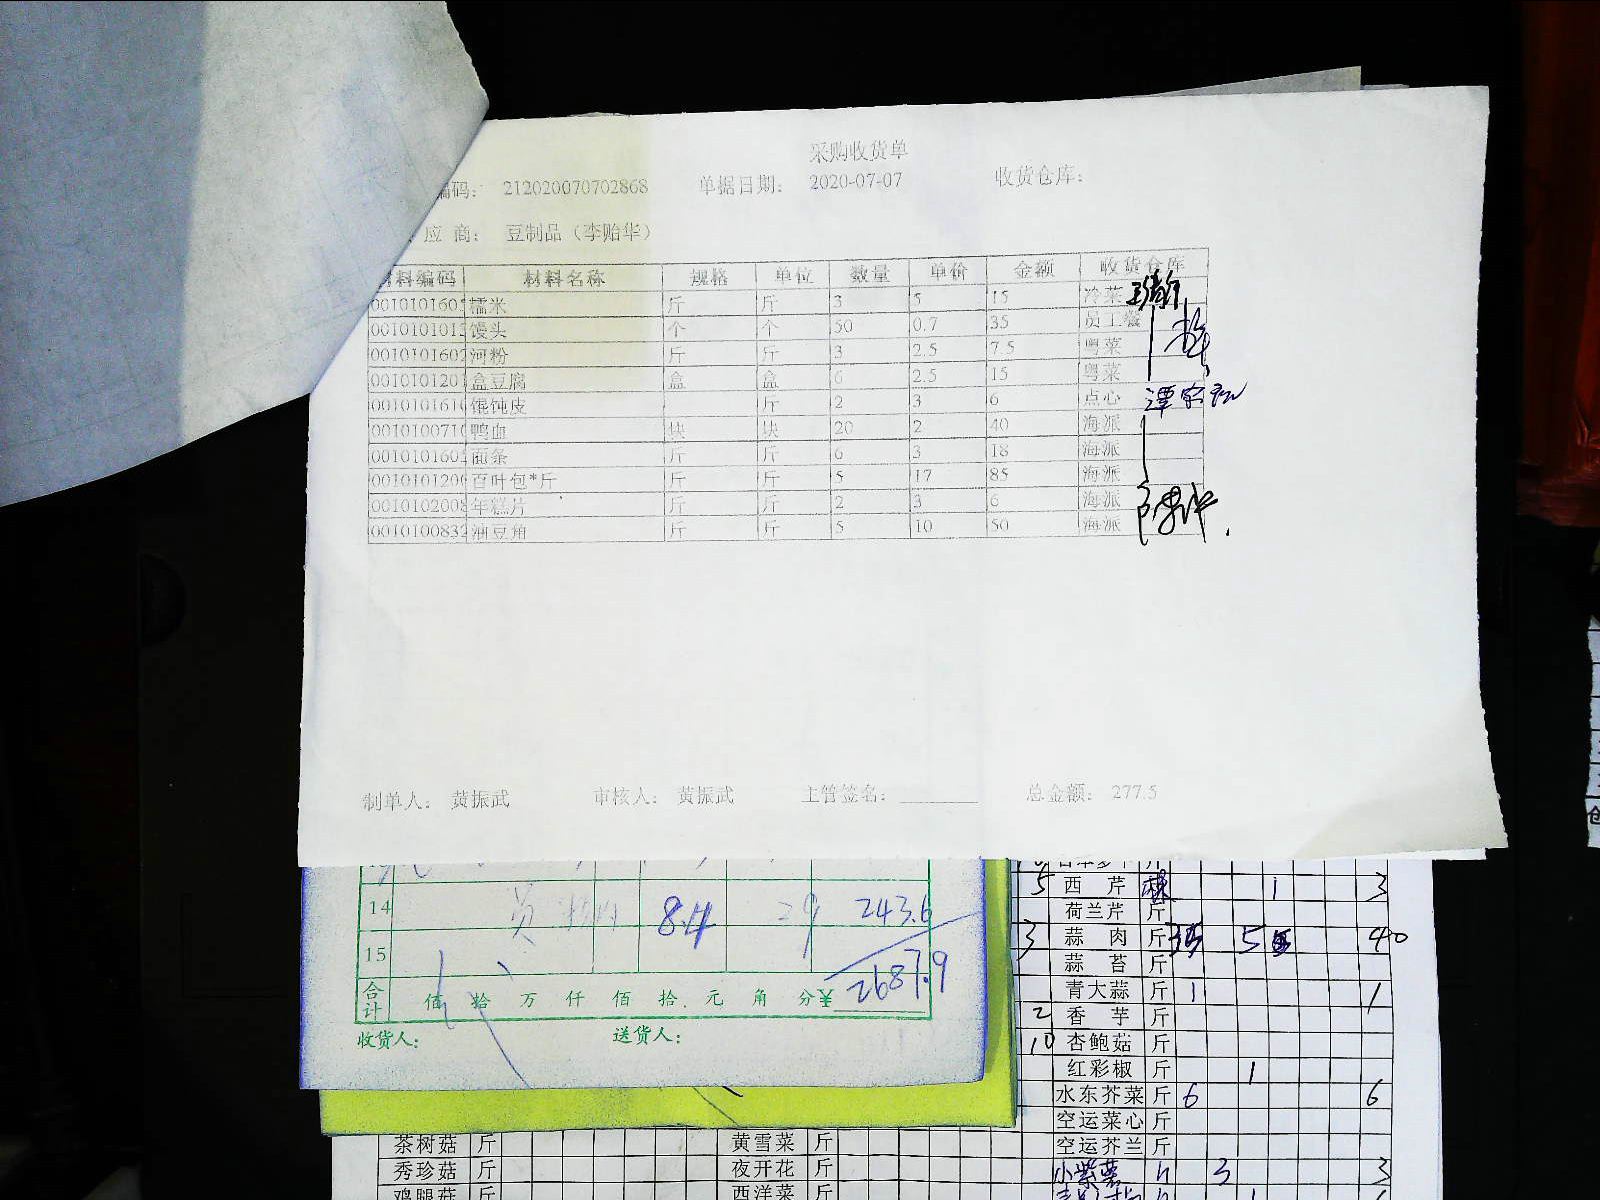 采购收货单
编码： 212020070702868 单据日期： 2020-07-07 收货仓库：
应 商： 豆制品（李贻华）
料编码 材料名称 规格 单位 数量 单价 金额 收货仓库
00101016 糯米 斤 斤 3 5 15 冷菜
0010101013 馒头 个 个 50 0.7 35 员工餐
001010160 河粉 斤 斤 3 2.5 7.5 粤菜
001010120 盒豆腐 盒 盒 6 2.5 15 粤菜
001010161 馄饨皮 斤 2 3 6 点心
0010100710 鸭血 块 块 20 2 40 海派
001010160 面条 斤 斤 6 3 18 海派
001010120 百叶包*斤 斤 斤 5 17 85 海派
0010102008 年糕片 斤 斤 2 3 6 海派
0010100832 油豆角 斤 斤 5 10 50 海派
制单人： 黄振武 审核人： 黄振武 主管签名： 总金额： 277.5
14 8.4 29 243.6
15
合计 佰 拾 万 仟 佰 拾 元 角 分 ¥ 2687.9
收货人： 送货人：
5 西芹 1 3
荷兰芹 斤
3 蒜肉 斤 35 5 40
蒜苔 斤
青大蒜 斤 1 1
2 香芋 斤
10 杏鲍菇 斤
红彩椒 斤 1
水东芥菜 斤 6 6
空运菜心 斤
茶树菇 斤 黄雪菜 斤 空运芥兰 斤
秀珍菇 斤 夜开花 斤 小紫薯 3 3
鸡腿菇 斤 西洋菜 斤